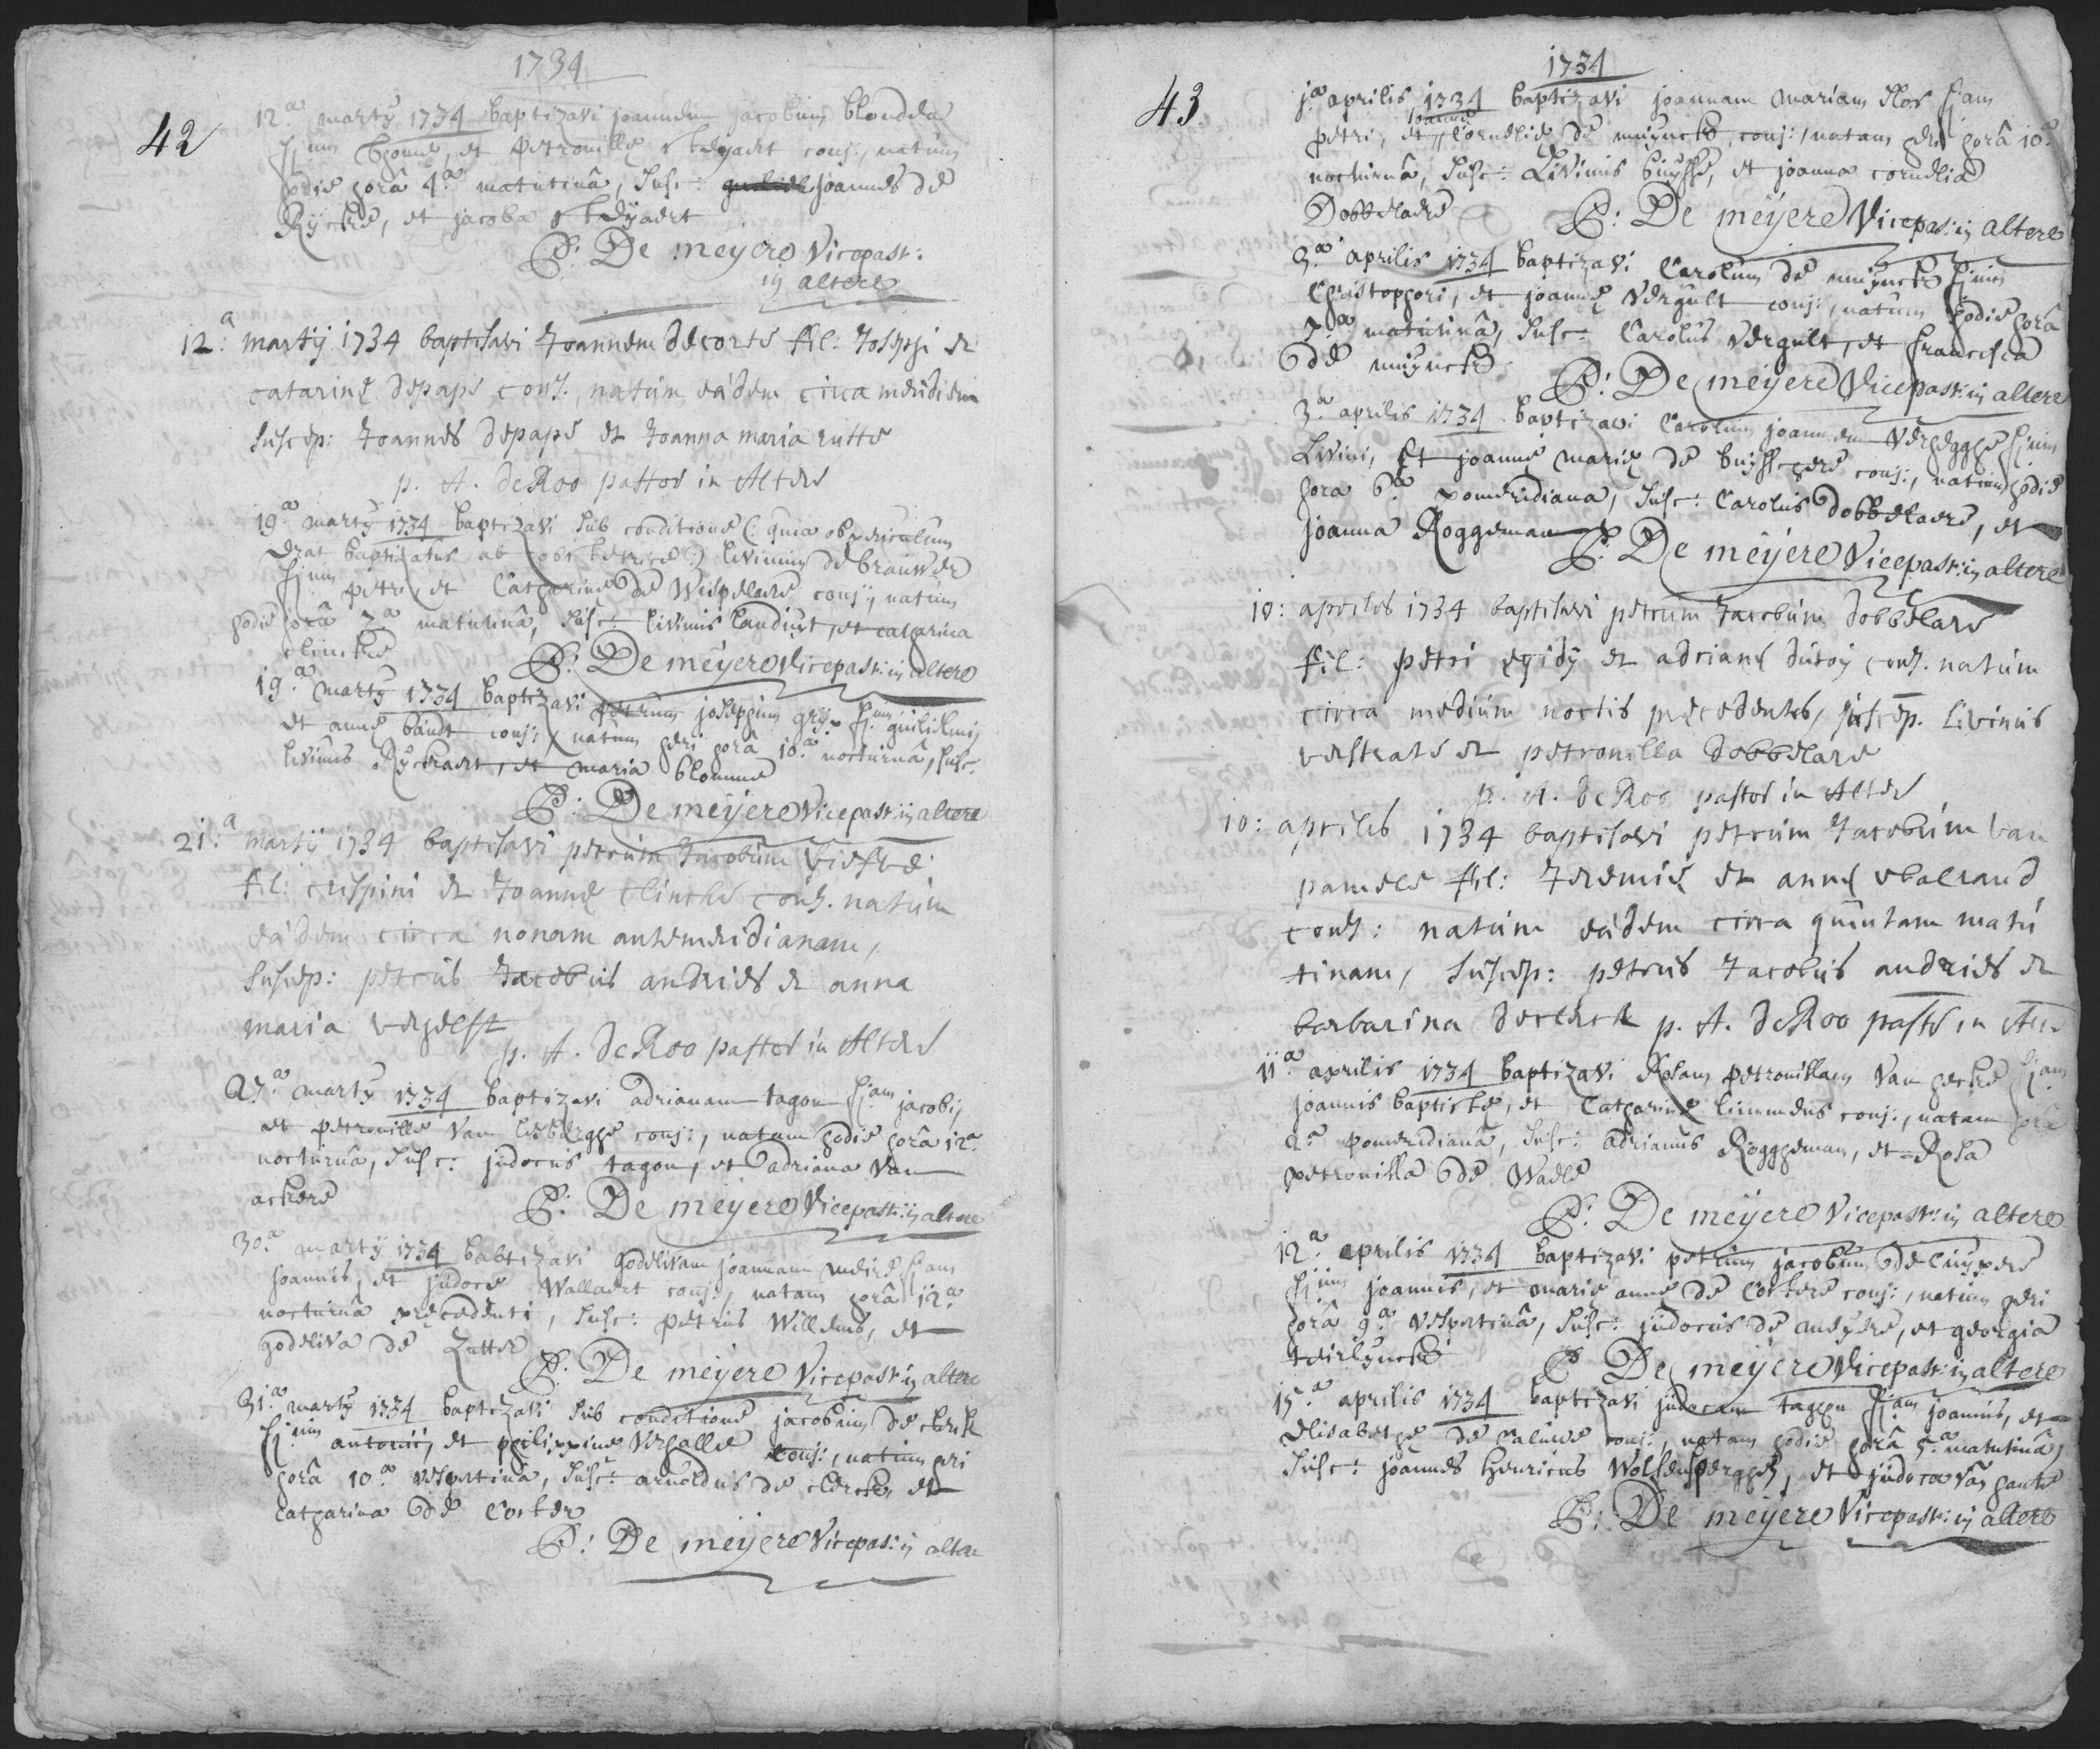 1734
42
12.a martÿ 1734 baptizavi joannem jacobum blondea
fium thomæ, et petronillæ steÿaert conj:, natum
hodie horâ 4.a matutinâ, susc: joannes de
Rÿcke, et jacoba steÿaert
P: De meyere Vicepast:
in altere
12.a martÿ 1734 baptisavi Joannem decorte fil: Josephi et
catarinæ depape conj., natum eâdem circa meridiem
suscep: Joannes depape et Joanna maria rutte
p. A. deRoo pastor in Altere
19.a martÿ 1734 baptizavi sub conditione (: quia ob periculum
erat baptizatus ab obstetrice :) livinum de brauwer
fium petri, et Catharinæ de Wispelaere conj:, natum
hodie horâ 7.a matutinâ, susc: livinus landuÿt, et catharina
clincke
P: De meÿere Vicepast: in altere
19.a martÿ 1734 baptizavi petrum josephum grÿp fium guilielmi,
et annæ bandt conj:, natum heri horâ 10.a nocturnâ, susc:
livinus Rÿckaert, et maria blomme
P: De meÿere Vicepast: in altere
21.a martÿ 1734 baptisavi petrum Jacobum
fil: crispini et Joannæ clincke conj. natum
eâdem circa nonam antemeridianam,
suscep: petrus Jacobus andries et anna
maria verhelst
p. A. deRoo pastor in Altere
27.a martÿ 1734 baptizavi adrianam tagon fiam jacobi,
et petronillæ Van lesberghe conj:, natam hodie horâ 12.a
nocturnâ, susc: judocus tagon, et adriana Van
ackere
P: De meyere Vicepast: in altere
30.a martÿ 1734 babtizavi godelivam joannam meire fiam
joannis, et judocæ Wallaert conj:, natam horâ 12.a
nocturnâ precedenti, susc: petrus Willems, et
godeliva de Zutter
P: De meyere Vicepast: in altere
31.a martÿ 1734 baptizavi sub conditione jacobum de clerck
fium antonii, et philippinæ Versallie conj:, natum heri
horâ 10.a vespertinâ, susc: arnoldus de clercke, et
catharina de Corter
P: De meÿere Vicepast: in altere
1734
43
j.a aprilis 1734 baptizavi joannam mariam flor fiam
petri, et joannæ Corneliæ de muÿncke, conj:, natam heri horâ 10.a
nocturnâ, susc: Livinus buÿsse, et joanna cornelia
Dobbelaere
P: De meÿere Vicepast: in altere
3.a aprilis 1734 baptizavi Carolum de muÿncke fium
Christophori, et joannæ Vergult conj:, natum hodie horâ
7.a matutinâ, susc: Carolus Vergult, et francisca
de muÿncke
P: De meÿere Vicepast: in altere
3.a aprilis 1734 baptizavi Carolum joannem Verhegghe fium
Livini, et joannæ mariæ de buÿsschere conj:, natum hodie
hora 6.a pomeridiana, susc: Carolus Dobbelaere, et
joanna Roggeman
P: De meÿere Vicepast: in altere
10: aprilis 1734 baptisavi petrum Jacobum dobbelare
fil: petri egidÿ et adrianæ dusoÿ conj. natum
circa medium noctis præcedentis, suscep. Livinus
verstrate et petronilla dobbelare
p. A. deRoo pastor in Altere
10: aprilis 1734 baptisavi petrum Jacobum van
pamele fil: Jeremiæ et annæ
conj: natum eâdem circa quintam matu
tinam, suscep: petrus Jacobus andries et
barbarina declerck p. A. deRoo pastor in
11.a aprilis 1734 baptizavi Rosam petronillam Van hecke fiam
joannis baptistæ, et Catharinæ limmens conj:, natam horâ
2.a pomeridianâ, susc: adrianus Roggheman, et Rosa
petronilla de Waele
P: De meÿere Vicepast: in altere
12.a aprilis 1734 baptizavi petrum jacobum de Cuÿpere
fium joannis, et mariæ annæ de Corkere conj:, natum heri
horâ 9.a vespertinâ, susc: judocus de meÿere, et georgia
teirlÿnck
P De meÿere Vicepast: in altere
15.a aprilis 1734 baptizavi judocam taghon fiam joannis, et
elisabethæ de Caluwe conj:, natam hodie horâ 5.a matutinâ,
susc: joannes henricus Wolfensperghe, et judoca Van hante
P: De meyere Vicepast: in altere